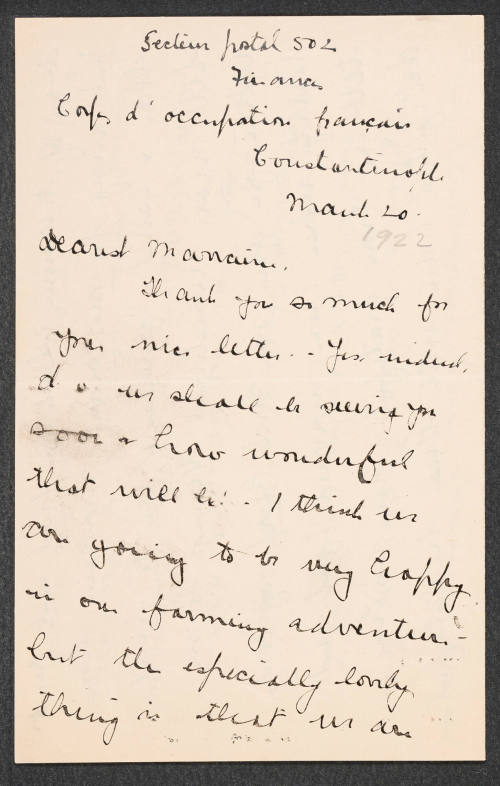 Secteur postal 502
Finances
Corps d'occupation français
Constantinople
March 20.
1922
Dearest Marraine,
Thank you so much for
your nice letter. - Yes, indeed,
we shall be seeing you
soon & how wonderful
that will be! - I think we
are going to be very happy
in our farming adventure -
but the especially lovely
thing is that we are